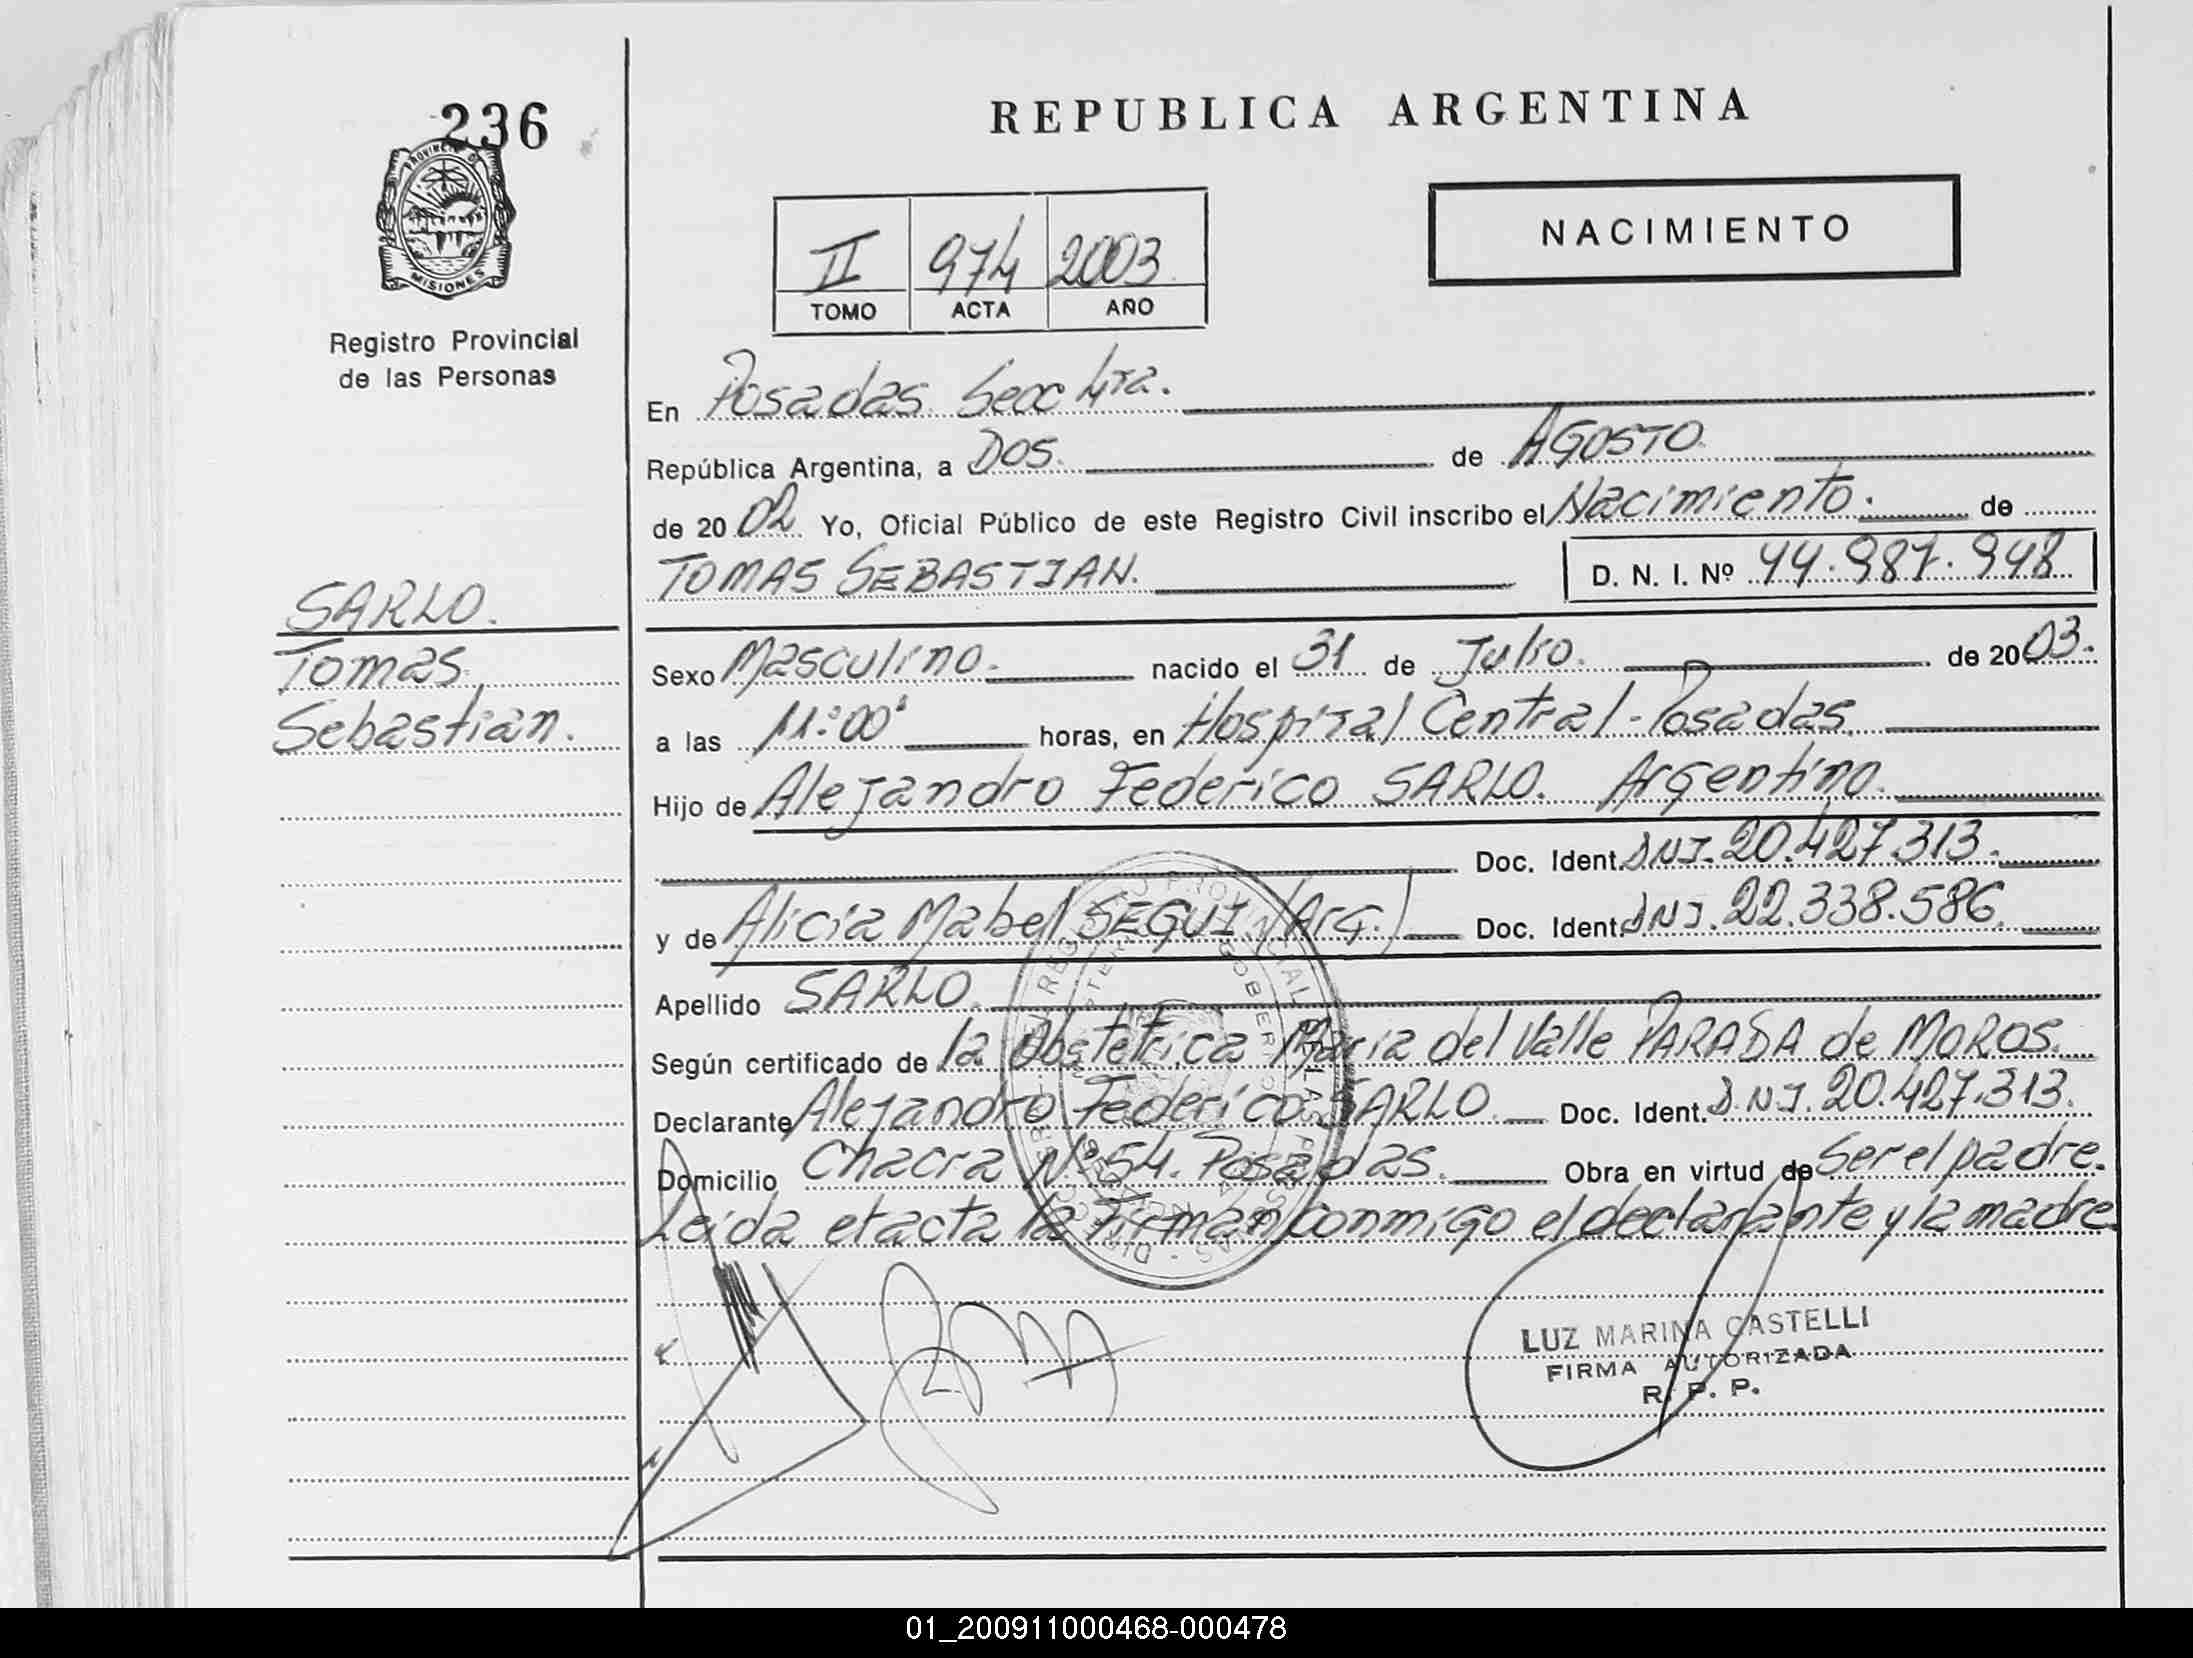 236
PROVINCIA D
MISIONES
Registro Provincial
de las Personas
SARLO.
Tomas
Sebastian.
REPUBLICA ARGENTINA
NACIMIENTO
II 974 2003
TOMO ACTA AÑO
En Posadas Secc 4ta.
República Argentina, a DOS. de AGOSTO
de 20 02 Yo, Oficial Público de este Registro Civil inscribo el Nacimiento. de
TOMAS SEBASTIAN. D. N. I. Nº 44.987.948
Sexo Masculino. nacido el 31 de Julio. de 20 03.
a las 11:00' horas, en Hospital Central - Posadas.
Hijo de Alejandro Federico SARLO. Argentino.
Doc. Ident. DNI. 20.427.313.
y de Alicia Mabel SEGUI (Arg.) Doc. Ident. DNI. 22.338.586.
Apellido SARLO.
Según certificado de la Obstetrica Maria del Valle PARADA de MOROS.
Declarante Alejandro Federico SARLO. Doc. Ident. D.N.I. 20.427.313.
Domicilio Chacra Nº 54. Posadas. Obra en virtud de Ser el padre.
Leida el acta la firman conmigo el declarante y la madre.
LUZ MARINA CASTELLI
FIRMA AUTORIZADA
R. P. P.
01_200911000468-000478